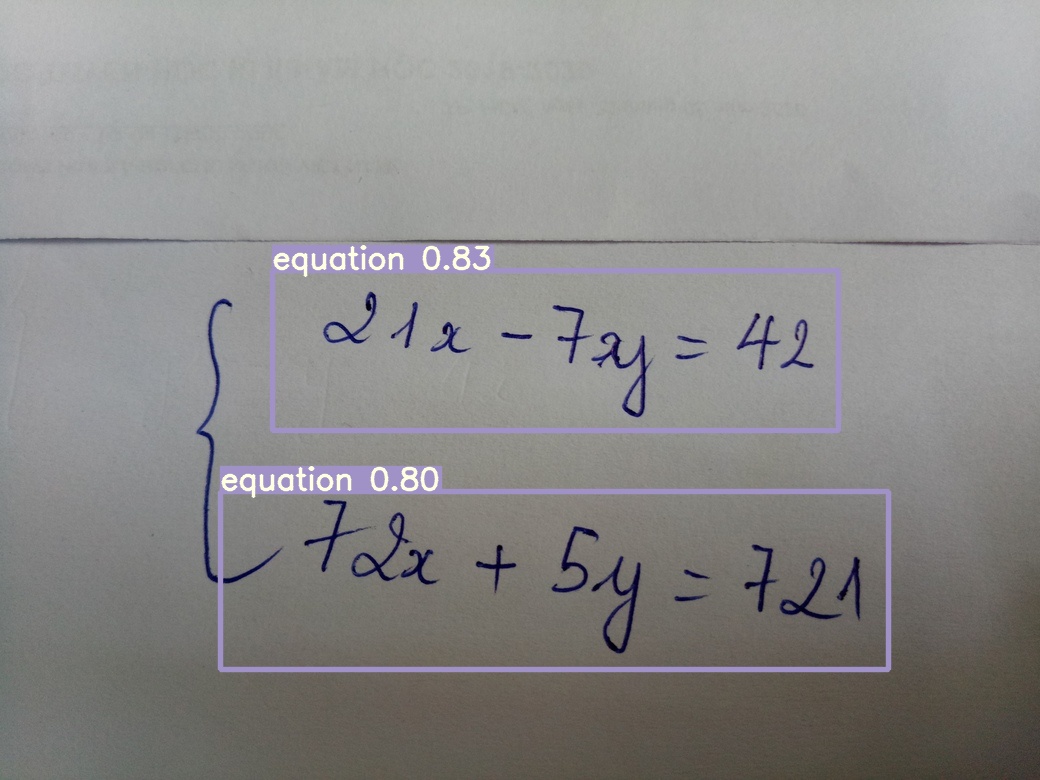 equation 0.83
21x - 7xy = 42
equation 0.80
72x + 5y = 721